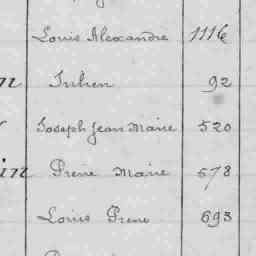 Louis Alexandre 1116
Julien 92
Joseph Jean Marie 520
Pierre Marie 578
in
Louis Pierre 693